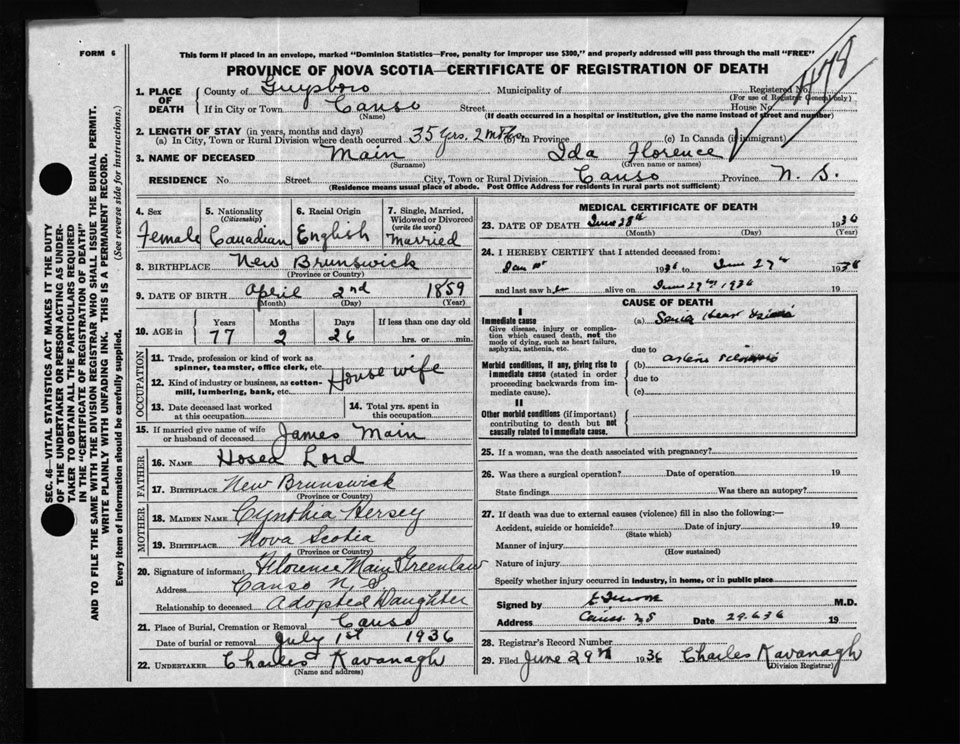 FORM 6
This form if placed in an envelope, marked "Dominion Statistics—Free, penalty for improper use $300," and properly addressed will pass through the mail "FREE"
PROVINCE OF NOVA SCOTIA—CERTIFICATE OF REGISTRATION OF DEATH
1. PLACE OF DEATH { County of Guysboro Municipality of Registered No.
(For use of Registrar General only)
If in City or Town Canso Street House No.
(Name) (If death occurred in a hospital or institution, give the name instead of street and number)
2. LENGTH OF STAY (in years, months and days)
(a) In City, Town or Rural Division where death occurred 35 yrs. 2 (b) In Province (c) In Canada (if immigrant)
3. NAME OF DECEASED Main Ida Florence
(Surname) (Given name or names)
RESIDENCE No. Street City, Town or Rural Division Canso Province N. S.
(Residence means usual place of abode. Post Office Address for residents in rural parts not sufficient)
4. Sex Female
5. Nationality (Citizenship) Canadian
6. Racial Origin English
7. Single, Married, Widowed or Divorced (write the word) Married
8. BIRTHPLACE New Brunswick
(Province or Country)
9. DATE OF BIRTH April 2nd 1859
(Month) (Day) (Year)
10. AGE in Years Months Days If less than one day old
77 2 26 hrs. or min.
OCCUPATION
11. Trade, profession or kind of work as spinner, teamster, office clerk, etc.
12. Kind of industry or business, as cotton-mill, lumbering, bank, etc.
House wife
13. Date deceased last worked at this occupation
14. Total yrs. spent in this occupation
15. If married give name of wife or husband of deceased James Main
FATHER
16. NAME Hosea Lord
17. BIRTHPLACE New Brunswick
(Province or Country)
MOTHER
18. MAIDEN NAME Cynthia Hersey
19. BIRTHPLACE Nova Scotia
(Province or Country)
20. Signature of informant Florence Main Greenlaw
Address Canso N. S
Relationship to deceased Adopted Daughter
21. Place of Burial, Cremation or Removal Canso
Date of burial or removal July 1st 1936
22. UNDERTAKER Charles Kavanagh
(Name and address)
MEDICAL CERTIFICATE OF DEATH
23. DATE OF DEATH June 28th 1936
(Month) (Day) (Year)
24. I HEREBY CERTIFY that I attended deceased from:
Jan 1936 to June 27th 1936
and last saw her alive on June 27th 1936 19
CAUSE OF DEATH
I
Immediate cause (a)
Give disease, injury or complication which caused death, not the mode of dying, such as heart failure, asphyxia, asthenia, etc.
due to
Morbid conditions, if any, giving rise to immediate cause (stated in order proceeding backwards from immediate cause). (b)
due to
(c)
II
Other morbid conditions (if important) contributing to death but not causally related to immediate cause.
25. If a woman, was the death associated with pregnancy?
26. Was there a surgical operation? Date of operation 19
State findings Was there an autopsy?
27. If death was due to external causes (violence) fill in also the following:—
Accident, suicide or homicide? Date of injury 19
(State which)
Manner of injury
(How sustained)
Nature of injury
Specify whether injury occurred in industry, in home, or in public place
Signed by M.D.
Address Canso N S Date 29.6.36 19
28. Registrar's Record Number
29. Filed June 29th 1936 Charles Kavanagh
(Division Registrar)
SEC. 46—VITAL STATISTICS ACT MAKES IT THE DUTY
OF THE UNDERTAKER OR PERSON ACTING AS UNDER-
TAKER TO OBTAIN ALL THE PARTICULARS REQUIRED
IN THE "CERTIFICATE OF REGISTRATION OF DEATH"
AND TO FILE THE SAME WITH THE DIVISION REGISTRAR WHO SHALL ISSUE THE BURIAL PERMIT.
WRITE PLAINLY WITH UNFADING INK. THIS IS A PERMANENT RECORD.
Every item of information should be carefully supplied. (See reverse side for instructions.)